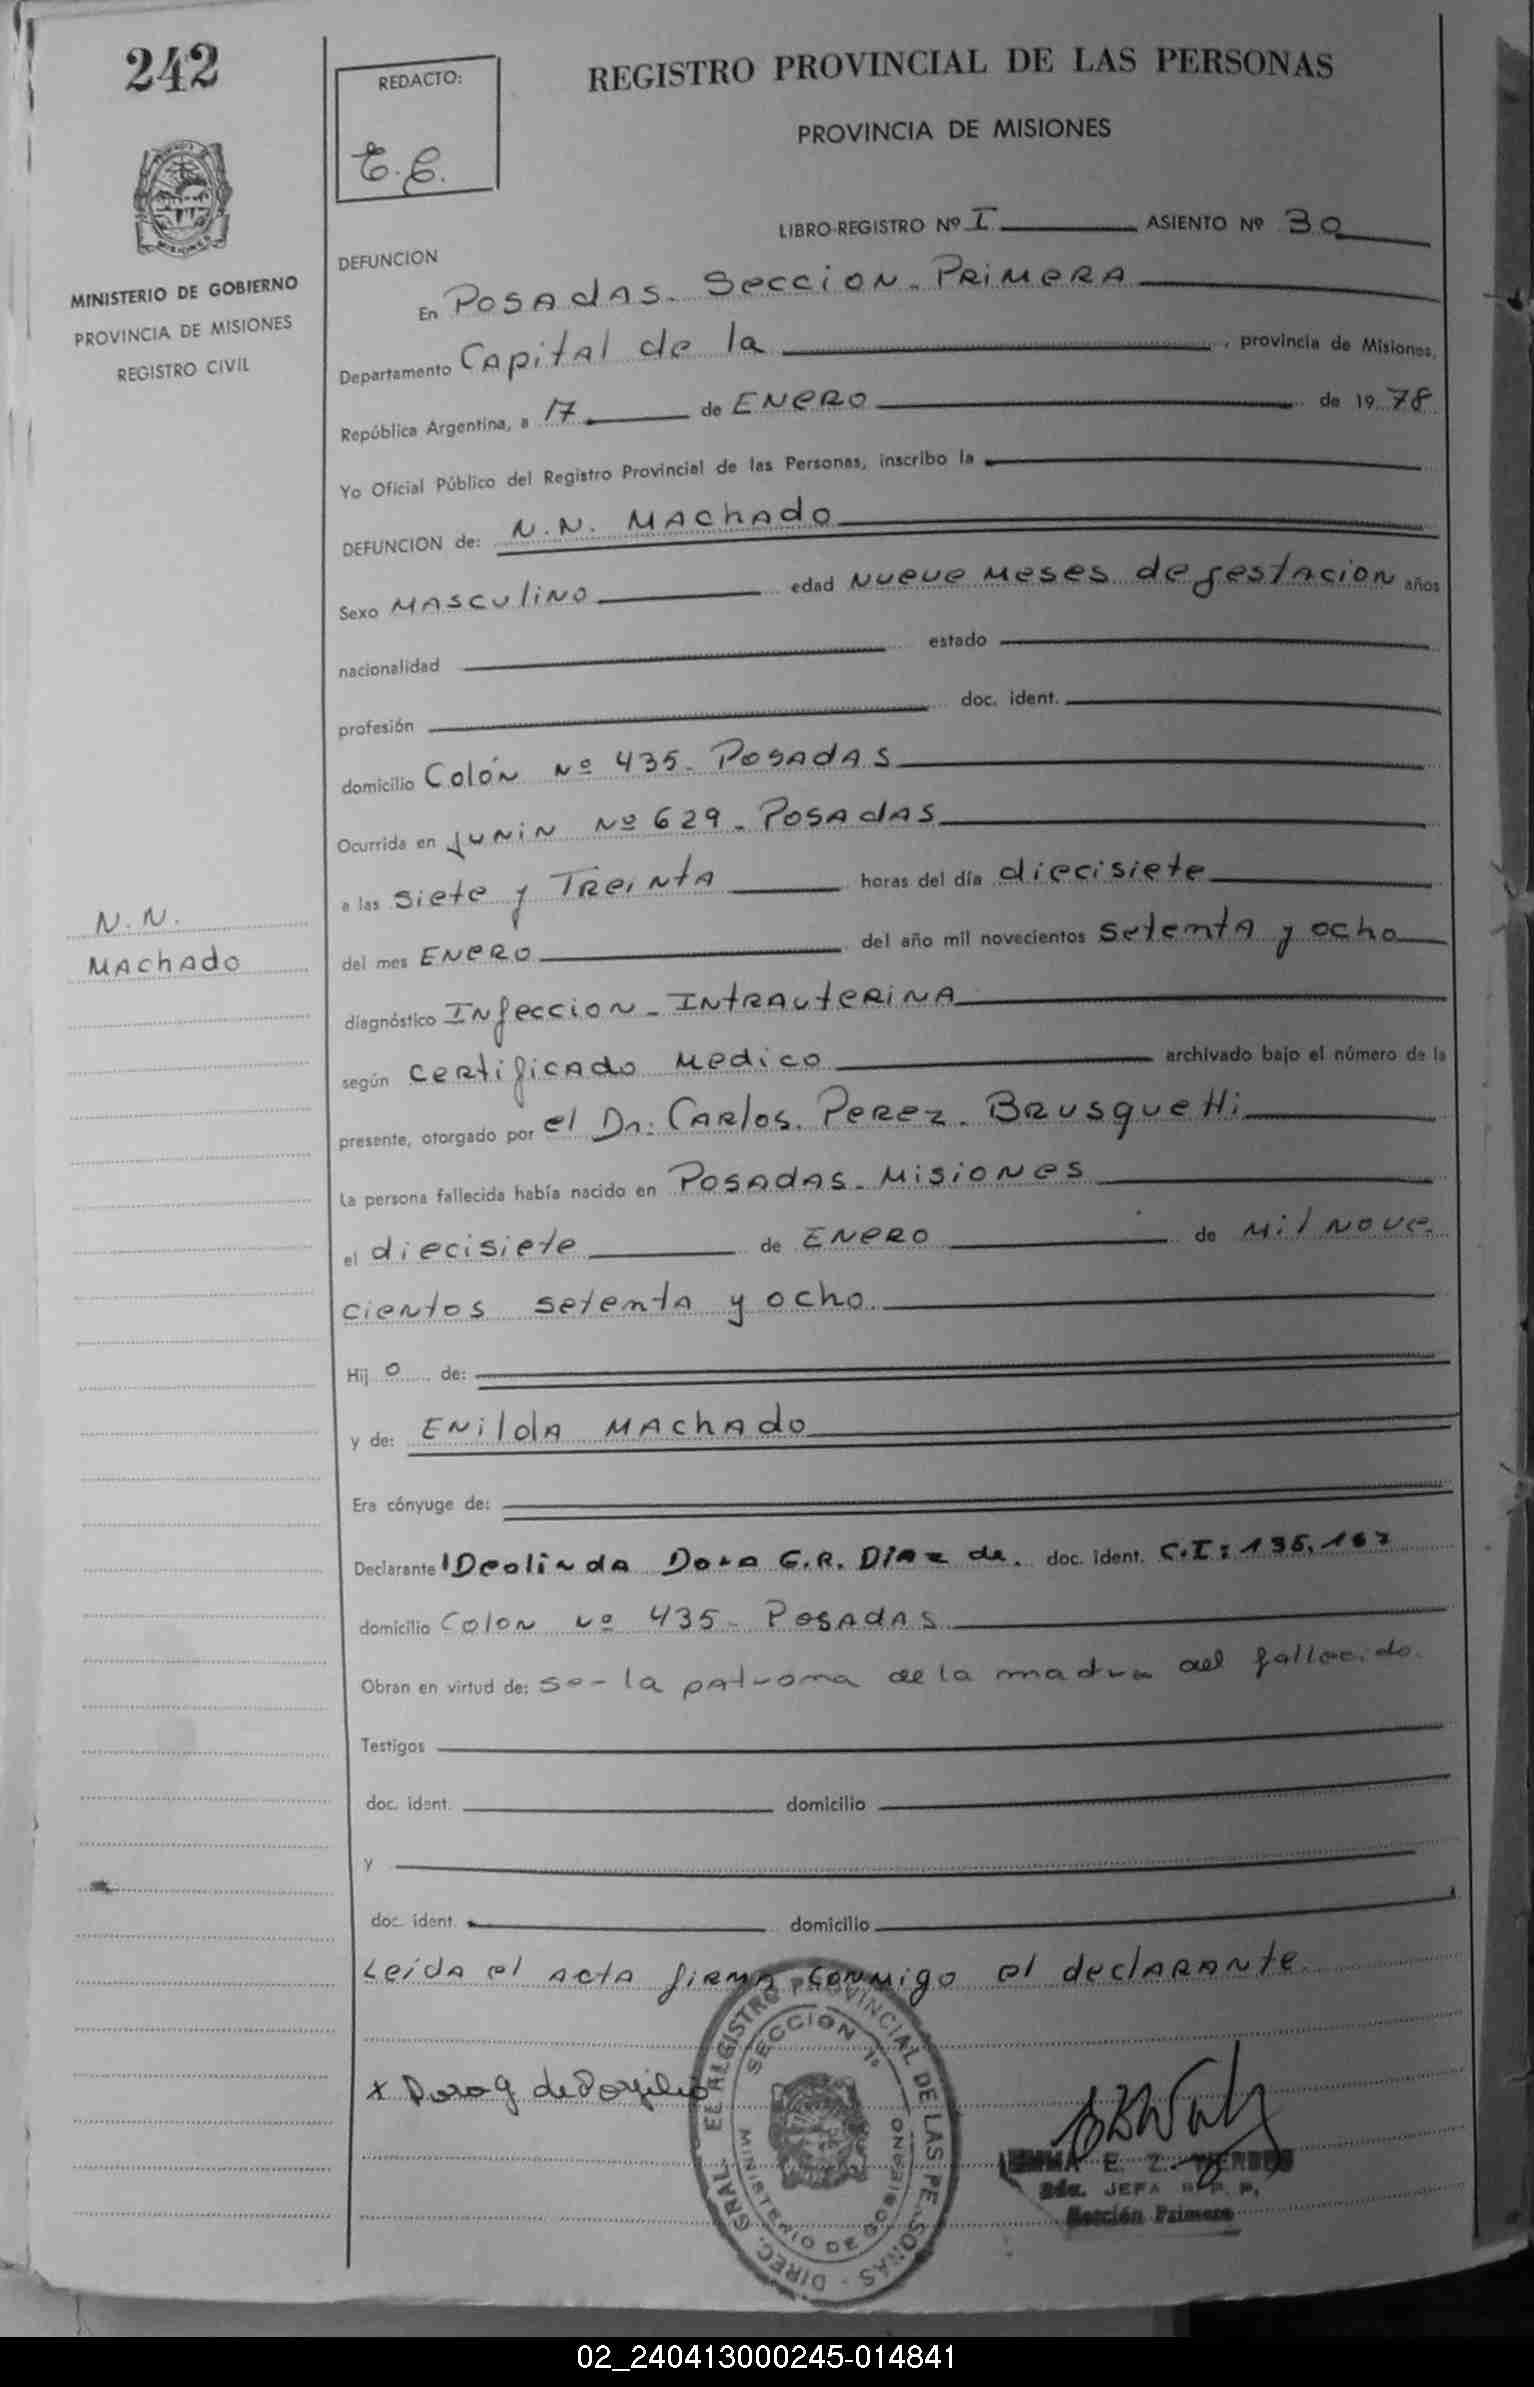 242
REDACTO:
E.E.
REGISTRO PROVINCIAL DE LAS PERSONAS
PROVINCIA DE MISIONES
MISIONES
MINISTERIO DE GOBIERNO
PROVINCIA DE MISIONES
REGISTRO CIVIL
LIBRO-REGISTRO Nº I ASIENTO Nº 30
DEFUNCION
En POSADAS. SECCION. PRIMERA
Departamento CAPITAL de la , provincia de Misiones,
República Argentina, a 17 de ENERO de 1978
Yo Oficial Público del Registro Provincial de las Personas, inscribo la
DEFUNCION de: N.N. MACHADO
Sexo MASCULINO edad NUEVE MESES de gestACION años
nacionalidad estado
profesión doc. ident.
domicilio Colón Nº 435. POSADAS
Ocurrida en JUNIN Nº 629. POSADAS
a las siete y TREINTA horas del día diecisiete
N.N.
MACHADO
del mes ENERO del año mil novecientos setenta y ocho
diagnóstico INFECCION - INTRAUTERINA
según CERTIFICADO MEDICO archivado bajo el número de la
presente, otorgado por el Dr: CARLOS. PEREZ. BRUSQUETTI
La persona fallecida había nacido en POSADAS. MISIONES
el diecisiete de ENERO de Mil NOVE.
cientos setenta y ocho.
Hijo de:
y de: ENILDA MACHADO
Era cónyuge de:
Declarante Deolinda Dora G.R. Díaz de. doc. ident. C.I: 135.167
domicilio COLON Nº 435 - POSADAS
Obran en virtud de: ser la patrona de la madre del fallecido.
Testigos
doc. ident. domicilio
y
doc. ident. domicilio
Leída el acta firma conmigo el declarante.
x Dora G de
DIREC. GRAL. REGISTRO PROVINCIAL DE LAS PERSONAS
SECCION 1ª
MINISTERIO DE GOBIERNO
EMMA E. Z.
2da. JEFA R.P.P.
Sección Primera
02_240413000245-014841